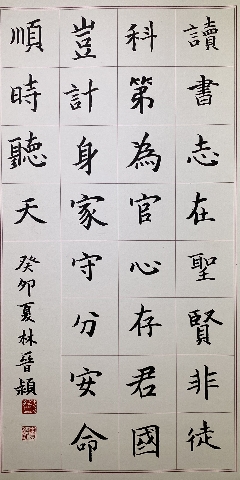 讀書志在聖賢非徒
科第為官心存君國
豈計身家守分安命
順時聽天
癸卯夏林晉穎